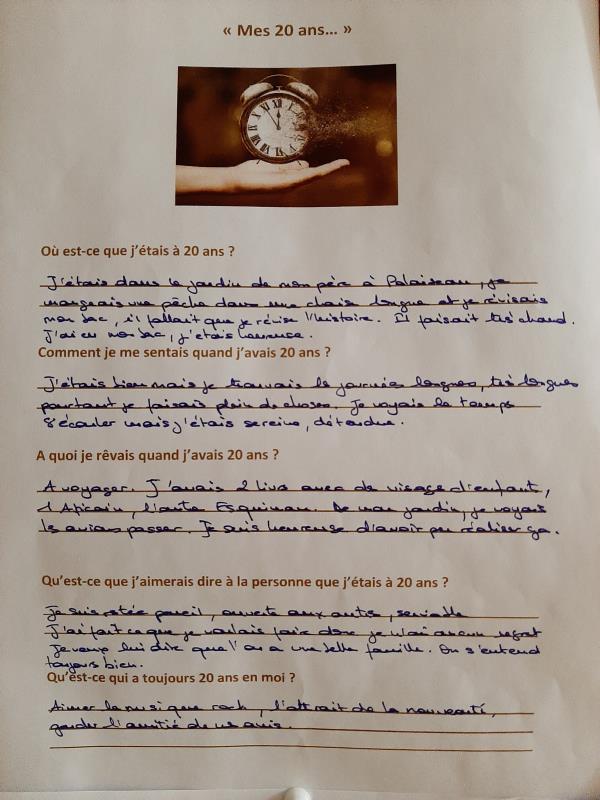 « Mes 20 ans... »
Où est-ce que j'étais à 20 ans ?
J'étais dans le jardin de mon père à Palaiseau, je
mangeais une pêche dans une chaise longue et je révisais
mon bac, il fallait que je révise l'histoire. Il faisait très chaud.
J'ai eu mon bac, j'étais heureuse.
Comment je me sentais quand j'avais 20 ans ?
J'étais bien mais je trouvais les journées longues, très longues
pourtant je faisais plein de choses. Je voyais le temps
s'écouler mais j'étais sereine, détendue.
A quoi je rêvais quand j'avais 20 ans ?
A voyager. J'avais 2 livres avec de visage d'enfant,
1 Africain, l'autre Esquimau. De mon jardin, je voyais
les avions passer. Je suis heureuse d'avoir pu réaliser ça.
Qu'est-ce que j'aimerais dire à la personne que j'étais à 20 ans ?
Je suis restée pareil, ouverte aux autres, serviable
J'ai fait ce que je voulais faire donc je n'ai aucun regret
Je veux lui dire que l'on a une belle famille. On s'entend
toujours bien.
Qu'est-ce qui a toujours 20 ans en moi ?
Aimer la musique rock, l'attrait de la nouveauté,
garder l'amitié de mes amis.